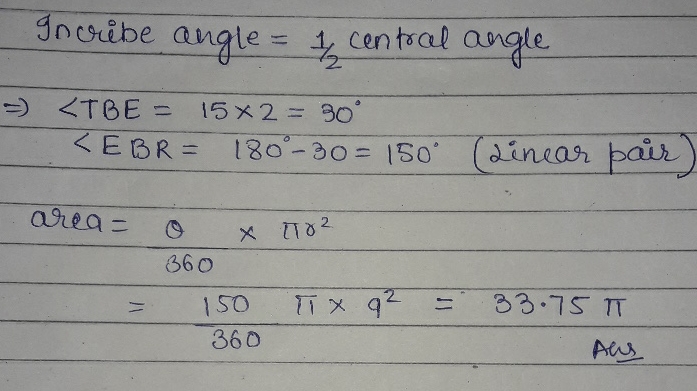 Incribe angle = 1/2 central angle
=> <TBE = 15 × 2 = 30°
<EBR = 180° - 30 = 150° (Linear pair)
area = θ/360 × πr²
= 150/360 π × 9² = 33.75 π
Ans